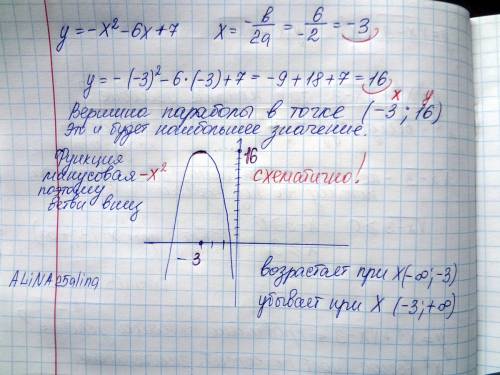 y = -x² - 6x + 7   x = -в/2a = 6/-2 = -3
y = -(-3)² - 6·(-3) + 7 = -9 + 18 + 7 = 16
Вершина параболы в точке (-3; 16)
x y
Это и будет наибольшее значение.
Функция
минусовая -x²
поэтому
ветви вниз
16
схематично!
-3
возрастает при X(-∞; -3)
убывает при X (-3; +∞)
ALiNA25alina